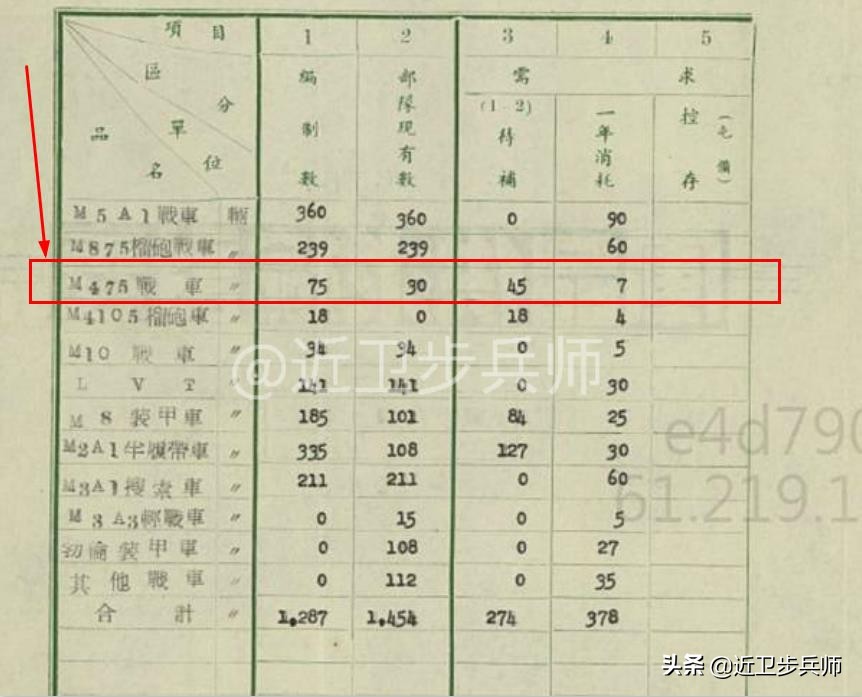 項目 1 2 3 4 5
區分 編制數 部隊現有數 需求
單位 (1-2)待補 一年消耗 控存(屯備)
品名
M5A1戰車 輛 360 360 0 90
M875榴砲戰車 〃 239 239 60
M475戰車 〃 75 30 45 7
M4105榴砲車 〃 18 0 18 4
M10戰車 〃 34 34 0 5
LVT 〃 141 141 0 30
M8装甲車 〃 185 101 84 25
M2A1半履帶車 〃 335 108 127 30
M3A1搜索車 〃 211 211 0 60
M3A3輕戰車 〃 0 15 0 5
勃倫装甲車 〃 0 108 0 27
其他戰車 〃 0 112 0 35
合計 〃 1,287 1,454 274 378
@近卫步兵师
e4d790
61.219.1
头条 @近卫步兵师